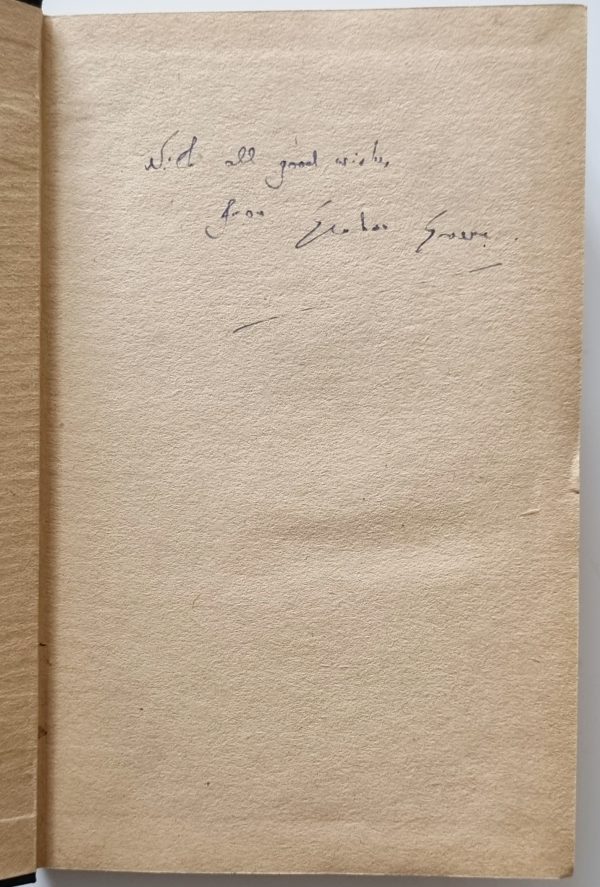 With all good wishes,
from Graham Greene.